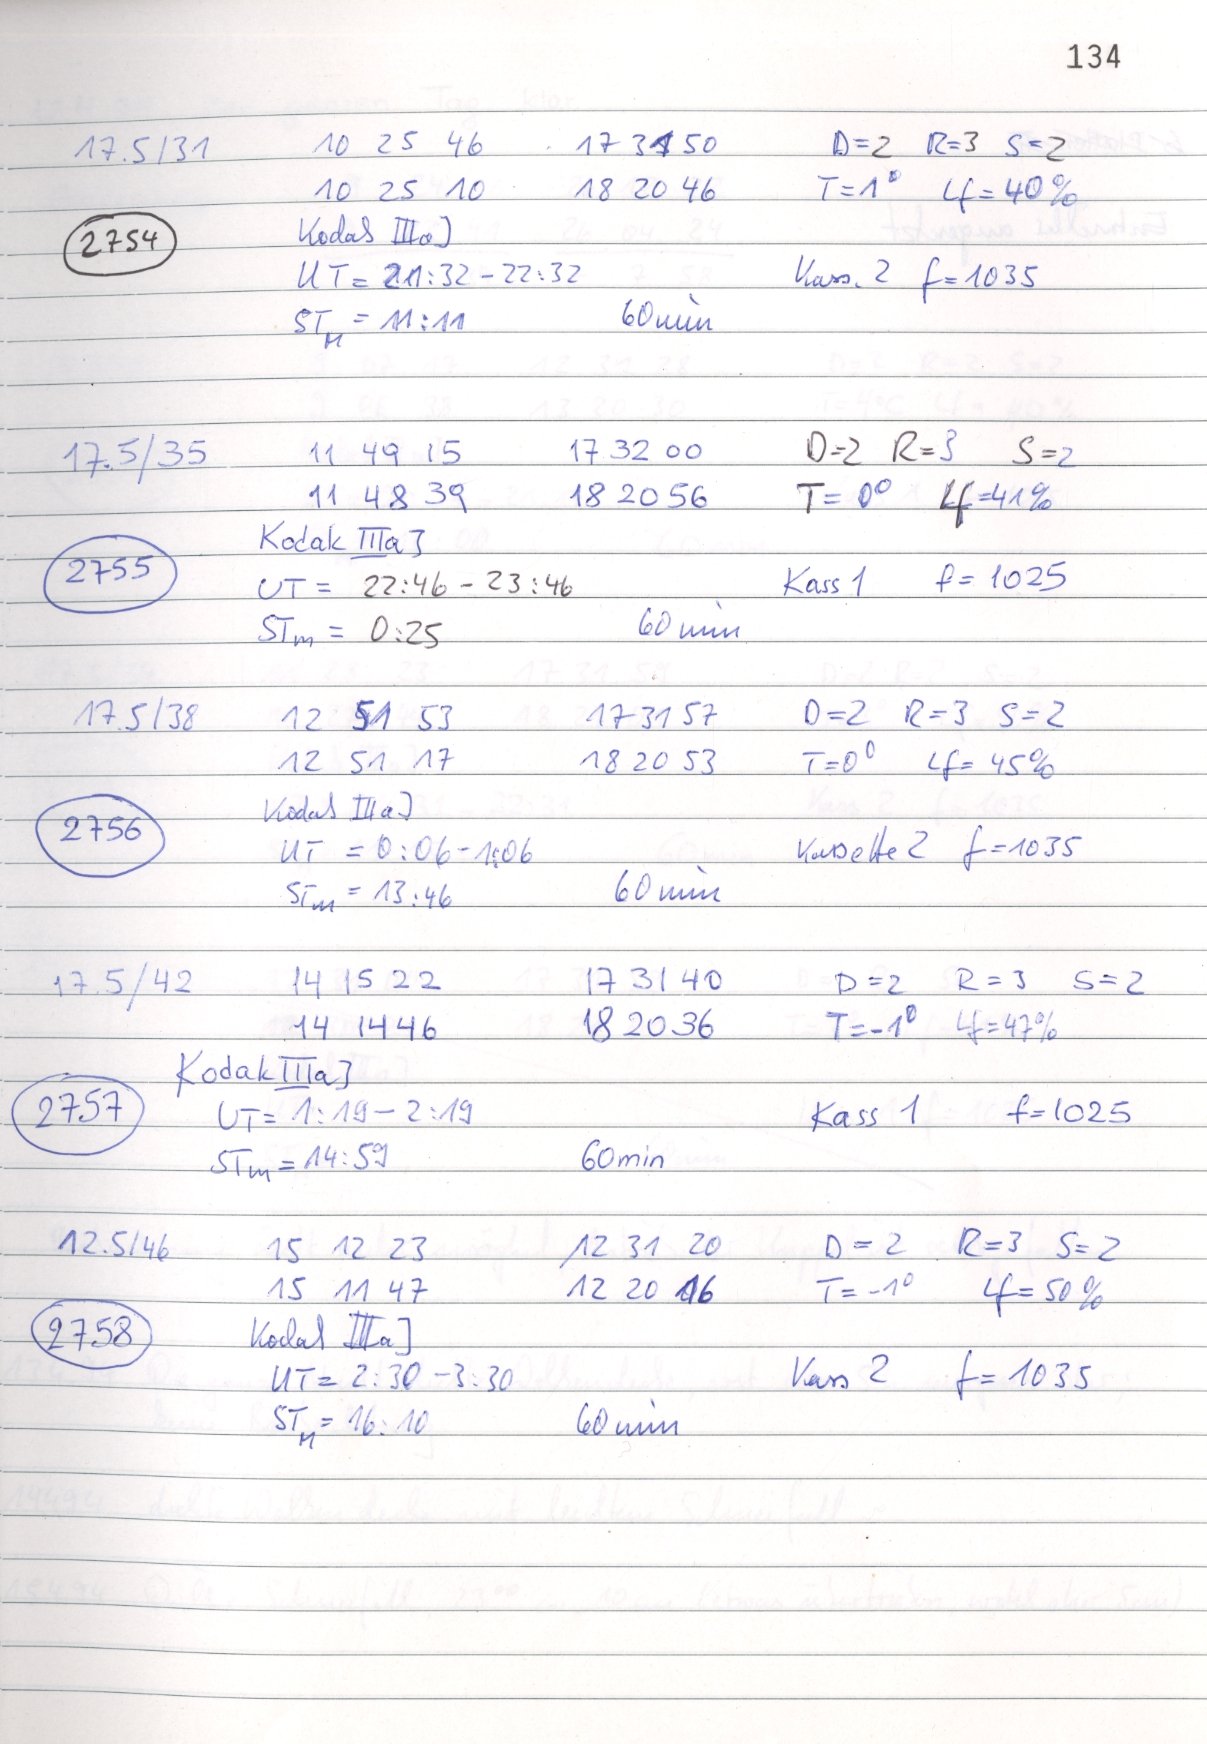 134
17.5/31 10 25 46 17 31 50 D=2 R=3 S=2
10 25 10 18 20 46 T=1° Lf=40%
2754 Kodak IIIaJ
UT=21:32-22:32 Kass. 2 f=1035
STM=11:11 60min
17.5/35 11 49 15 17 32 00 D=2 R=3 S=2
11 48 39 18 20 56 T=0° Lf=41%
Kodak IIIaJ
2755 UT= 22:46-23:46 Kass 1 f=1025
STm= 0:25 60min
17.5/38 12 51 53 17 31 57 D=2 R=3 S=2
12 51 17 18 20 53 T=0° Lf=45%
2756 Kodak IIIaJ
UT =0:06-1:06 Kassette 2 f=1035
STm=13:46 60min
17.5/42 14 15 22 17 31 40 D=2 R=3 S=2
14 14 46 18 20 36 T=-1° Lf=47%
Kodak IIIaJ
2757 UT=1:19-2:19 Kass 1 f=1025
STm=14:59 60min
12.5/46 15 12 23 12 31 20 D=2 R=3 S=2
15 11 47 12 20 16 T=-1° Lf=50%
2758 Kodak IIIaJ
UT=2:30-3:30 Kass 2 f=1035
STM=16:10 60min